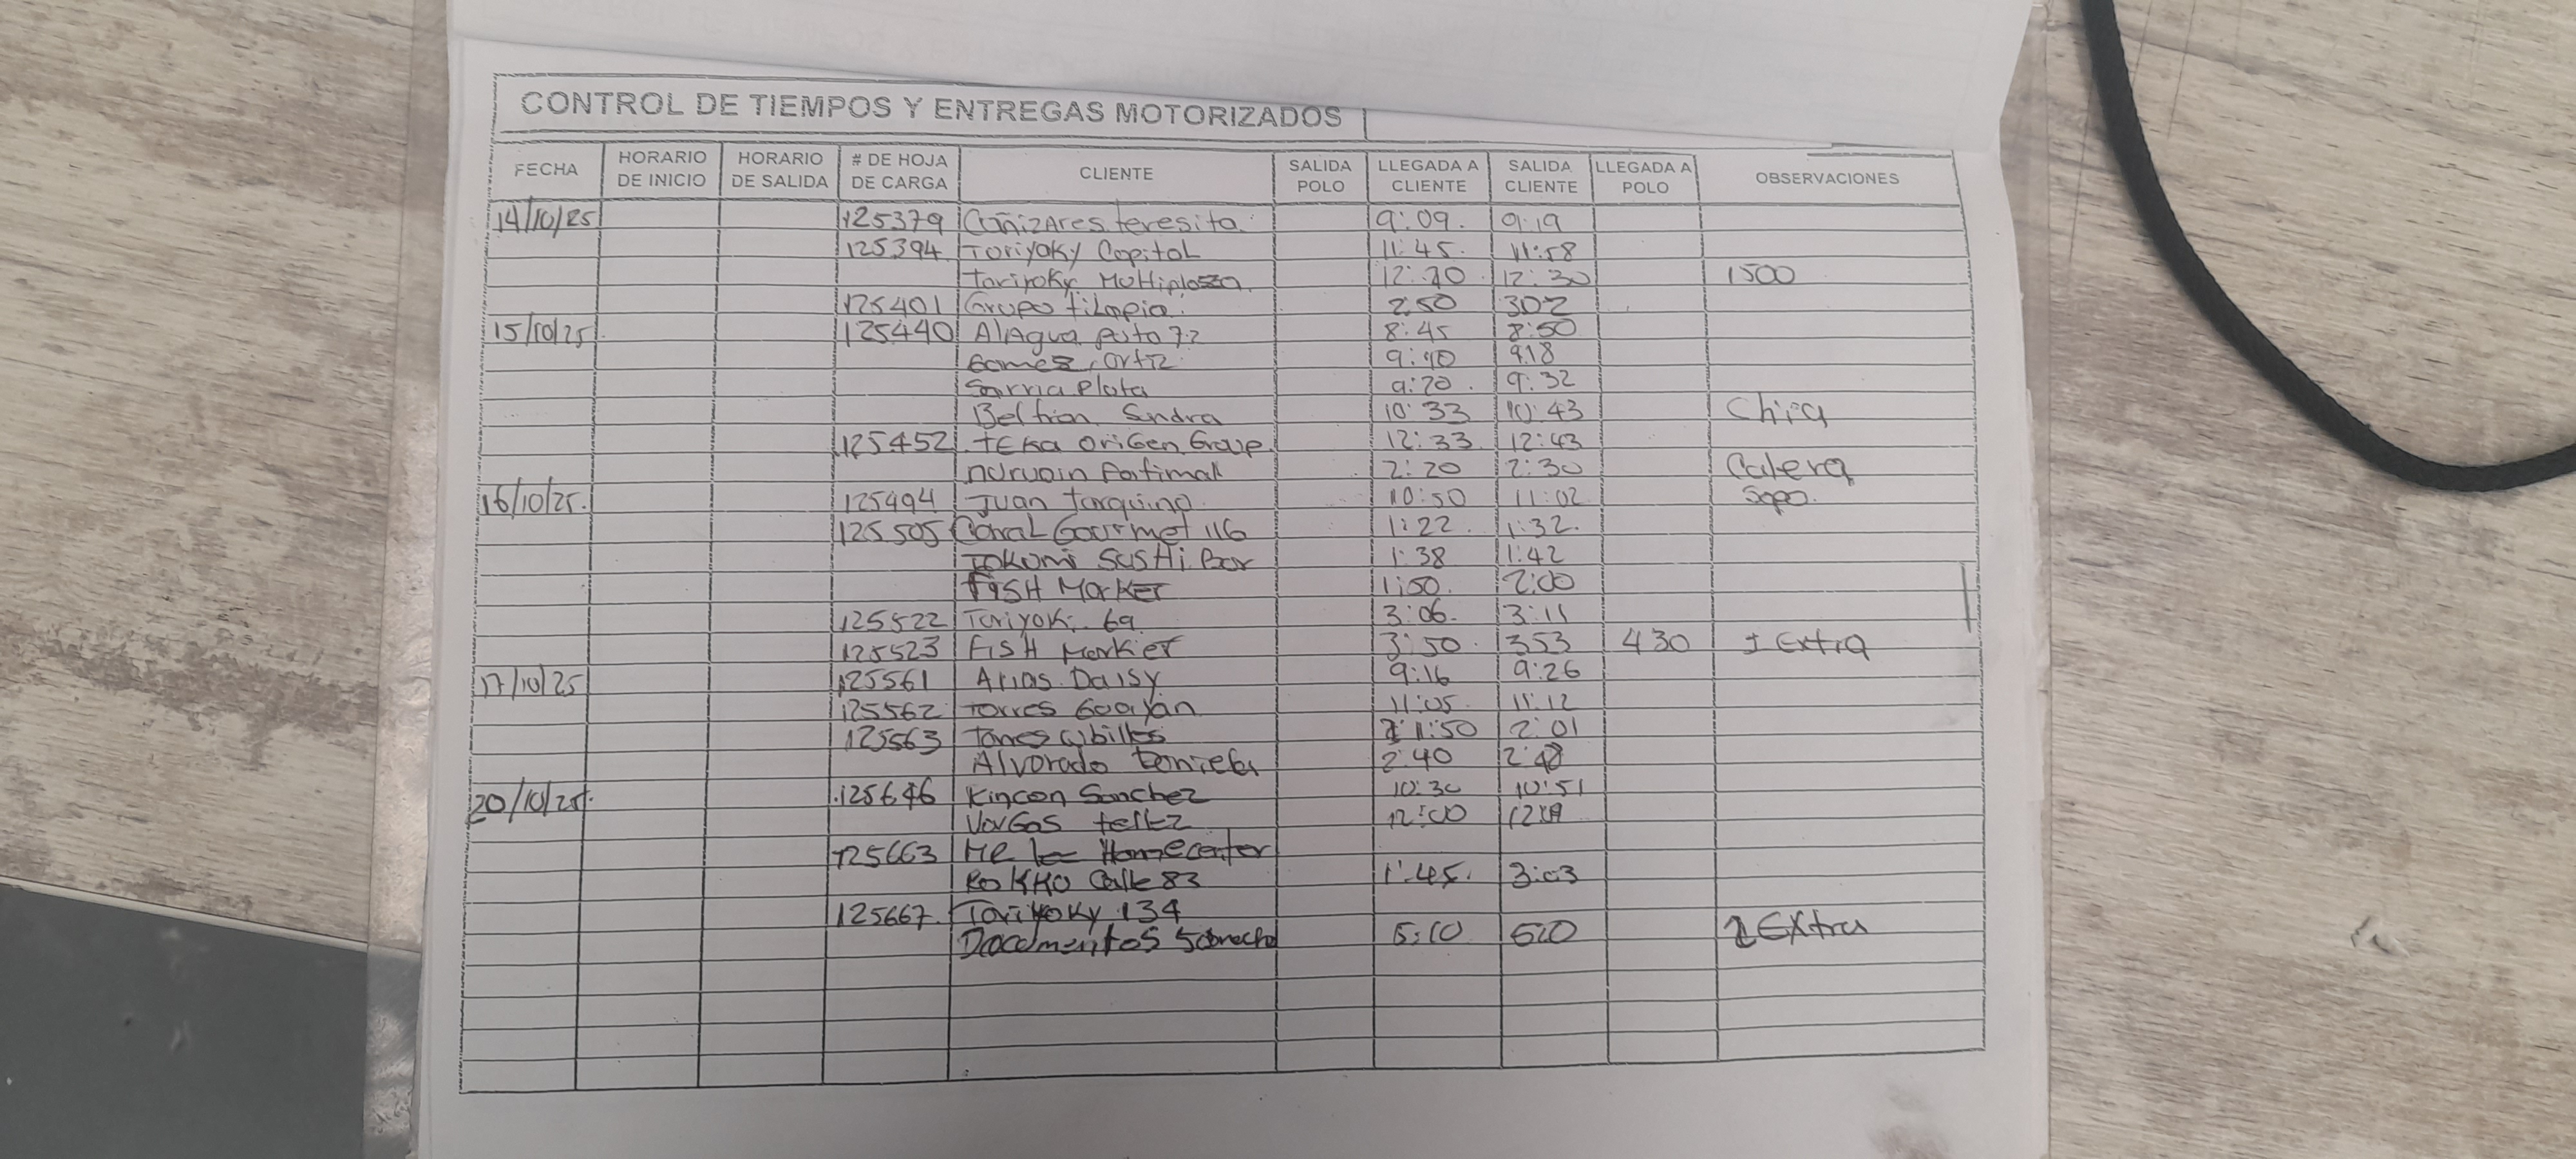 CONTROL DE TIEMPOS Y ENTREGAS MOTORIZADOS
FECHA HORARIO DE INICIO HORARIO DE SALIDA # DE HOJA DE CARGA CLIENTE SALIDA POLO LLEGADA A CLIENTE SALIDA CLIENTE LLEGADA A POLO OBSERVACIONES
14/10/25 125379 Cañizares teresita. 9:09. 9:19
125394 Toriyoky Capital 11:45. 11:58
Toriyoky Multiplaza 12:20 12:30 1500
125401 Grupo tilapia. 2:50 302
15/10/25 125440 AlAgua psto 72 8:45 8:50
Gomez Ortiz 9:10 9:18
Sarria Plata 9:20. 9:32
Beltran Sandra 10:33 10:43 Chia
125452 teka Origen Group. 12:33 12:43
Portimal 2:20 2:30 Calera
16/10/25. 125494 Juan Tarquino. 10:50 11:02 Sopo.
125505 Coral Gourmet 116 1:22. 1:32.
Tokomi Sushi Bar 1:38 1:42
FISH Market 1:50. 2:00
125522 Toriyoki 69 3:06. 3:11
125523 FISH Market 3:50. 353 430 1 Extra
17/10/25 125561 Arias Daisy. 9:16 9:26
125562 Torres Guayan 11:05. 11:12
125563 1:50 2:01
Alvarado Daniela 2:40 2:48
20/10/25. 125646 Rincon Sanchez 10:30 10:51
Vargas tellez 12:00
125663 Homecenter
ROKKO Calle 83 1:45. 3:03
125667. Toriyoky 134
Documentos 5:10 520 2 Extra